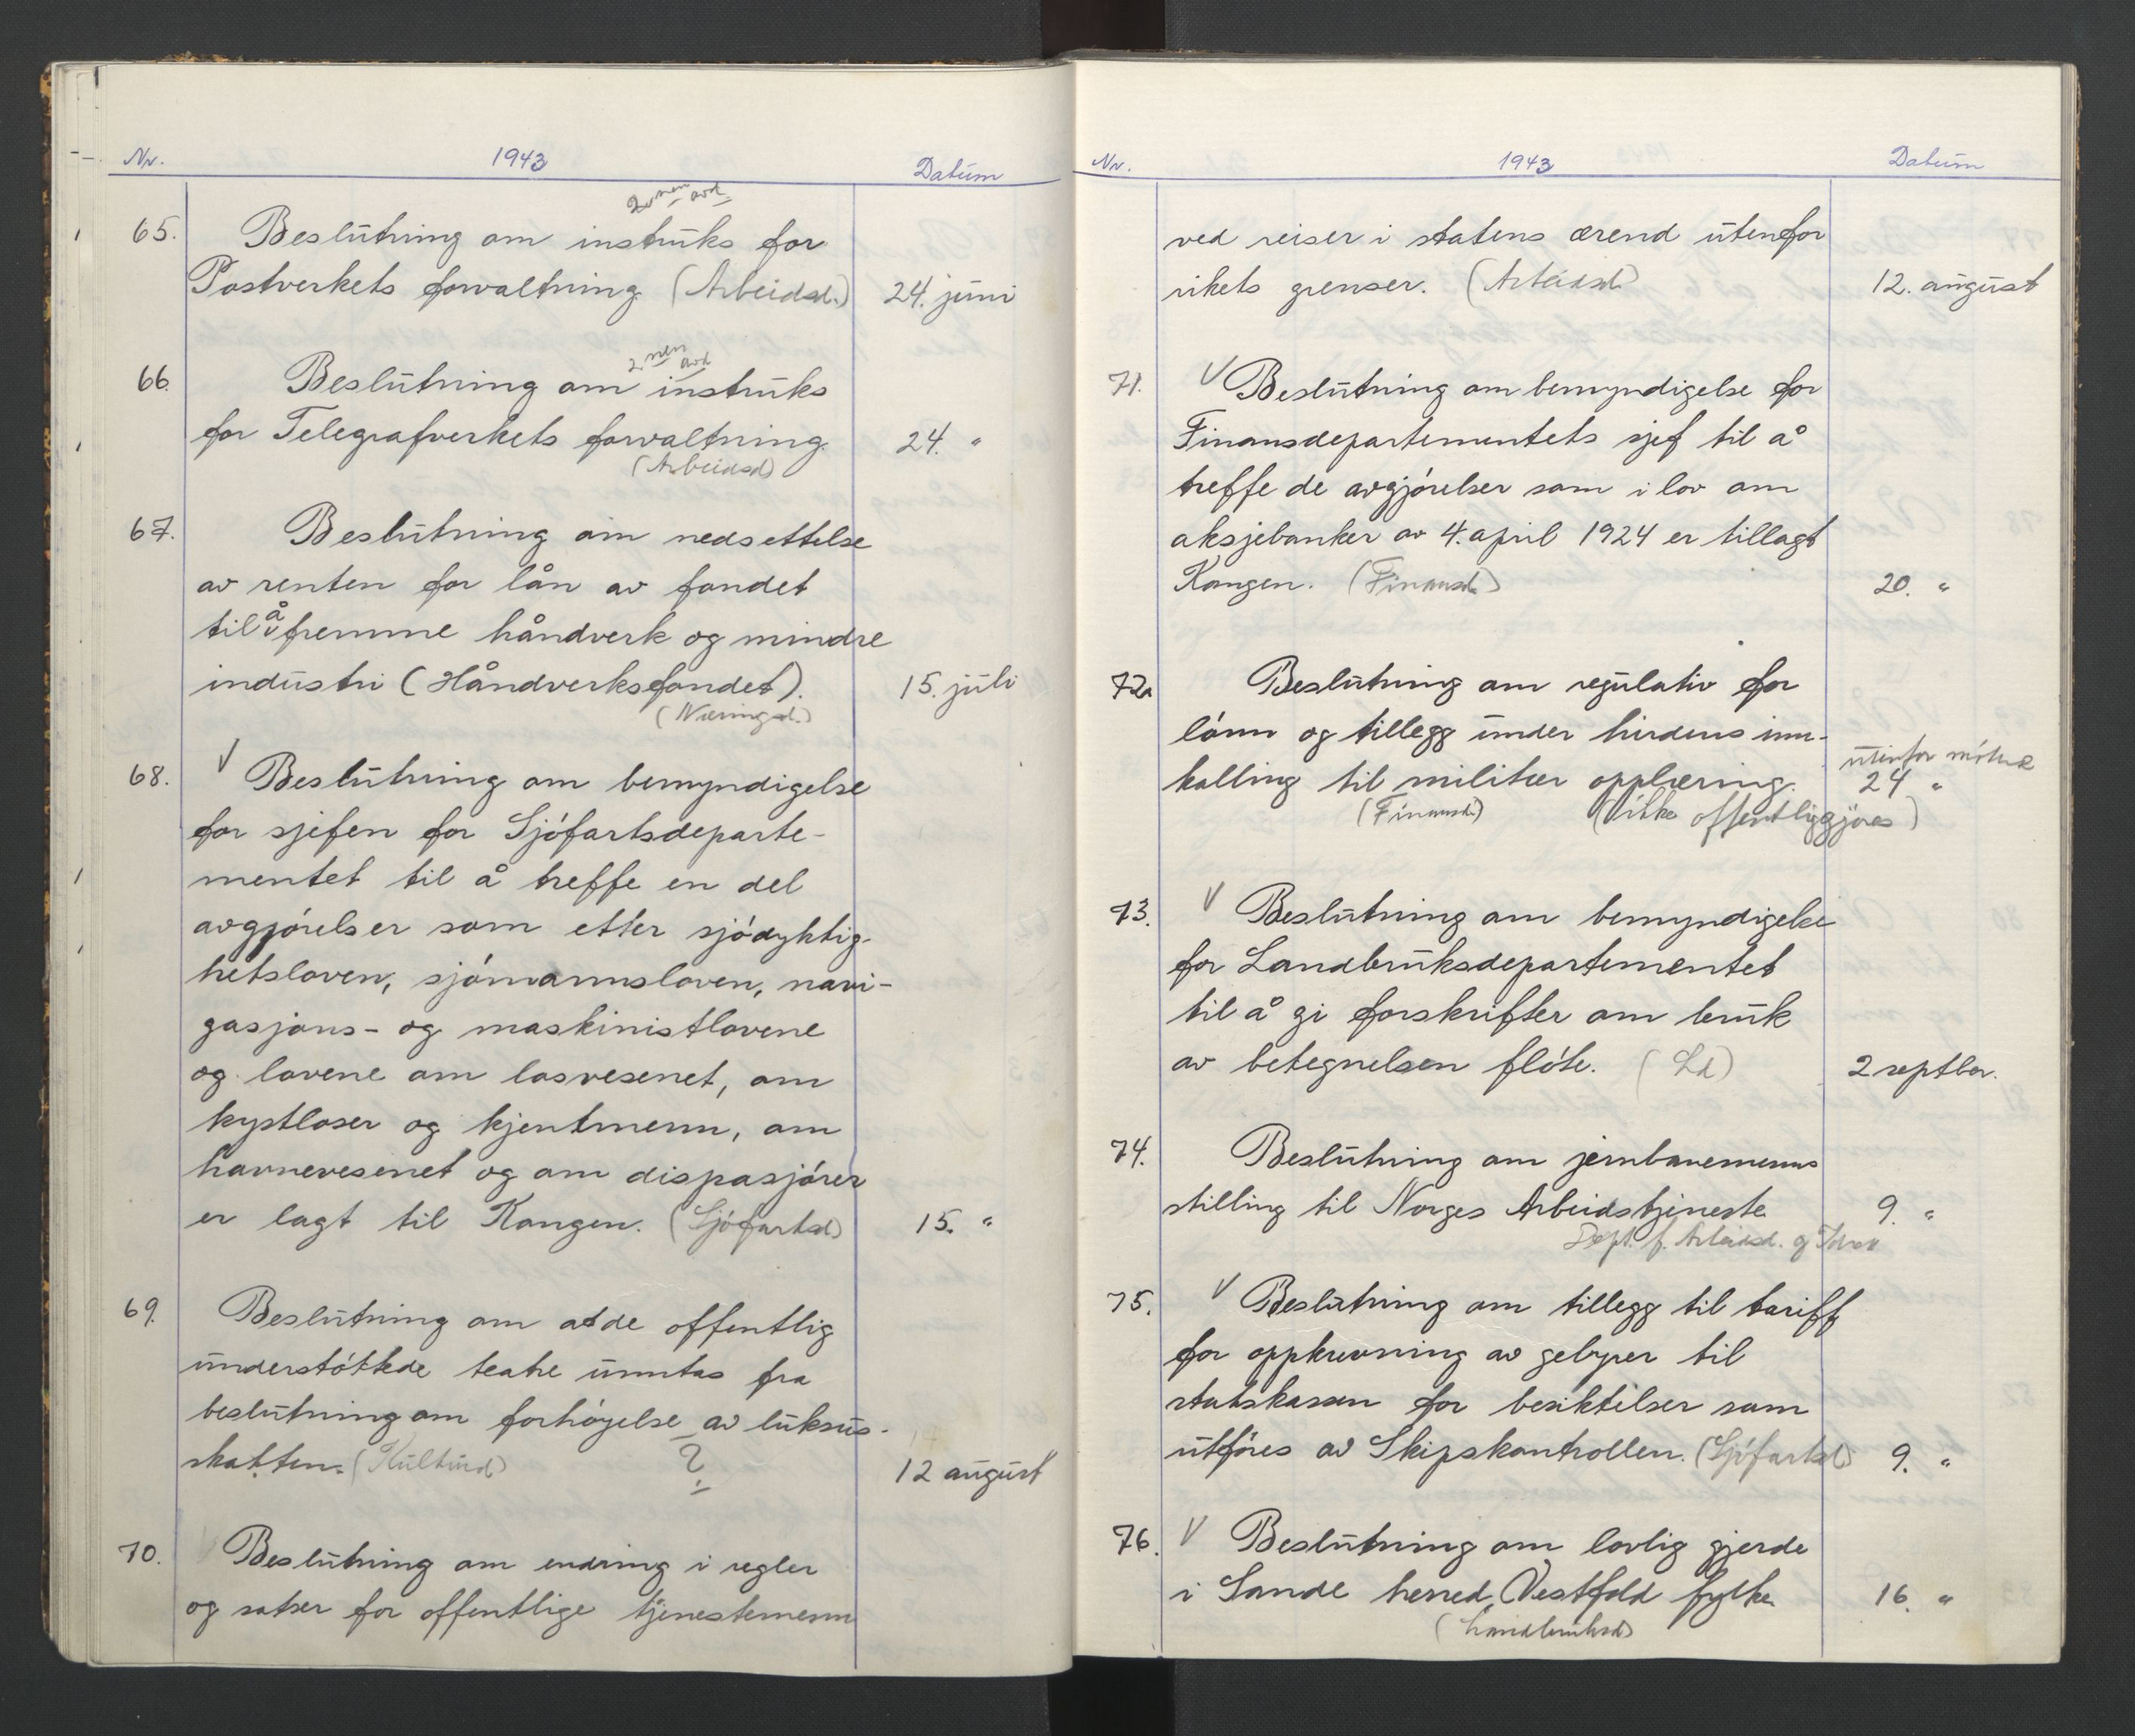 Nr. 1943 Datum
2. nen avd
65. Beslutning om instruks for
Postverkets forvaltning (Arbeidsd.) 24. juni
2. nen avd
66. Beslutning om instruks
for Telegrafverkets forvaltning. 24. "
(Arbeidsd)
67. Beslutning om nedsettelse
av renten for lån av fondet
til å fremme håndverk og mindre
industri (Håndverksfondet). 15. juli
(Næringsd.)
68. V Beslutning om bemyndigelse
for sjefen for Sjøfartsdeparte-
mentet til å treffe en del
avgjørelser som etter sjødyktig-
hetsloven, sjømannsloven, navi-
gasjons- og maskinistlovene
og lovene om losvesenet, om
kystloser og kjentmenn, om
havnevesenet og om dispasjører
er lagt til Kongen. (Sjøfartsd) 15. "
69. Beslutning om at de offentlig
understøttede teatre unntas fra
beslutning om forhøyelse av luksus-
skatten. (Kulturd) ? 12 august
70. Beslutning om endring i regler
og satser for offentlige tjenestemenn
Nr. 1943 Datum
ved reiser i statens ærend utenfor
rikets grenser. (Arbeidsd) 12. august
71. V Beslutning om bemyndigelse for
Finansdepartementets sjef til å
treffe de avgjørelser som i lov om
aksjebanker av 4. april 1924 er tillagt
Kongen. (Finansd.) 20. "
72a Beslutning om regulativ for
lønn og tillegg under hirdens inn-
kalling til militær opplæring. utenfor møtene 24 "
(Finansd.) (ikke offentliggjøres)
73. V Beslutning om bemyndigelse
for Landbruksdepartementet
til å gi forskrifter om bruk
av betegnelsen fløte. (Ld) 2 septbr.
74. Beslutning om jernbanemenns
stilling til Norges Arbeidstjeneste 9. "
Dept. f. Arbeidsd. og Idrett
75. V Beslutning om tillegg til tariff
for oppkrevning av gebyrer til
statskassen for besiktelser som
utføres av Skipskontrollen. (Sjøfartsd) 9. "
76. V Beslutning om lovlig gjerde
i Sande herred, Vestfold fylke. 16. "
(Landbruksd)